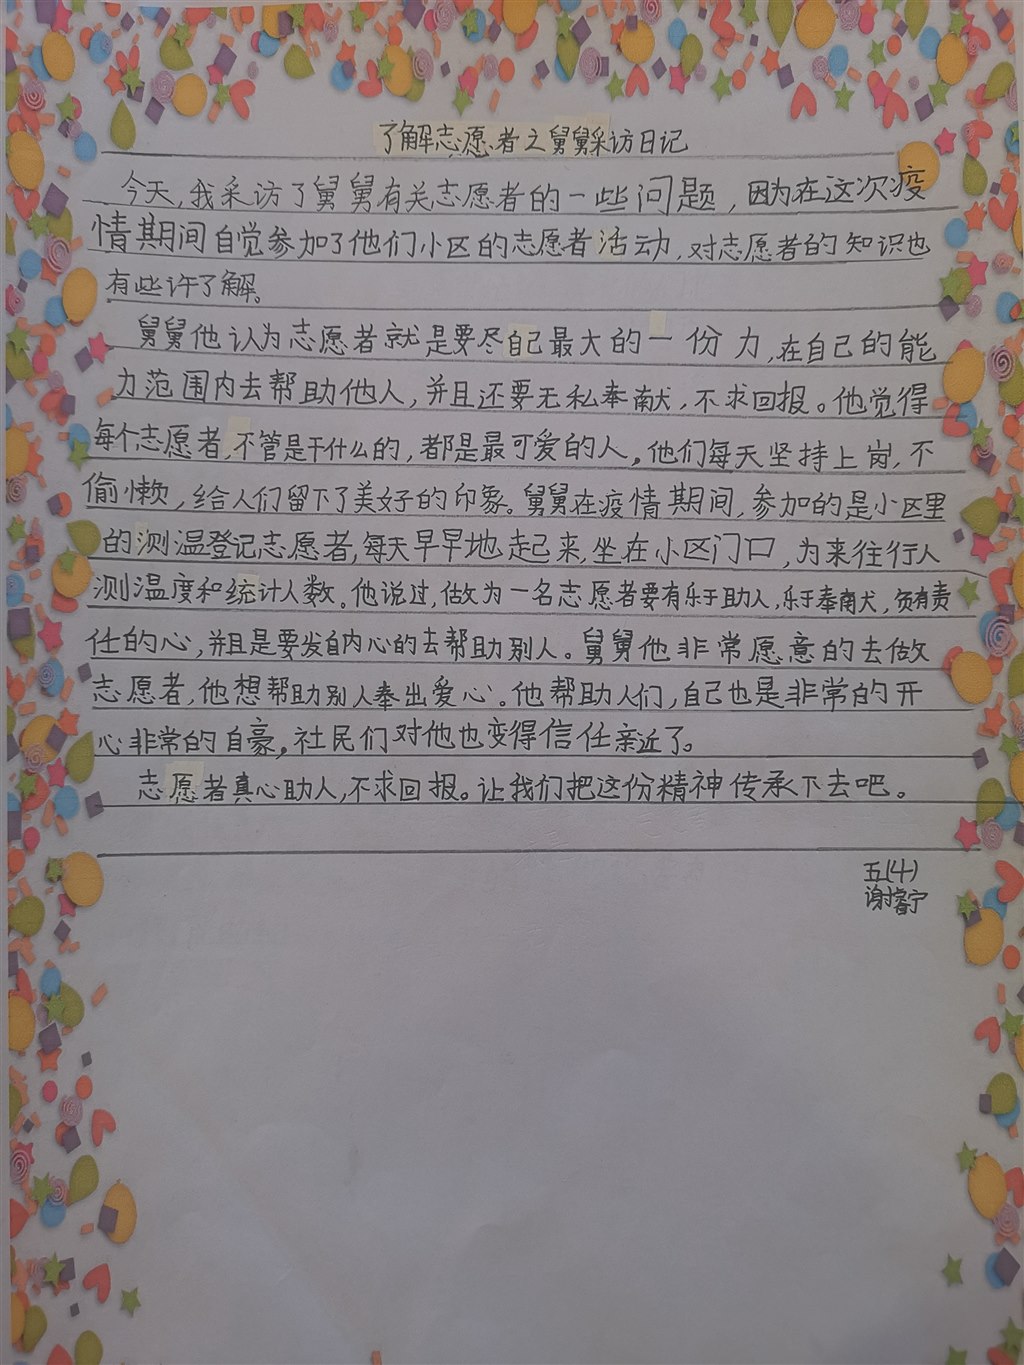 了解志愿者之舅舅采访日记
今天,我采访了舅舅有关志愿者的一些问题，因为在这次疫
情期间自觉参加了他们小区的志愿者活动,对志愿者的知识也
有些许了解。
舅舅他认为志愿者就是要尽自己最大的一份力,在自己的能
力范围内去帮助他人,并且还要无私奉献,不求回报。他觉得
每个志愿者,不管是干什么的,都是最可爱的人。他们每天坚持上岗,不
偷懒,给人们留下了美好的印象。舅舅在疫情期间,参加的是小区里
的测温登记志愿者,每天早早地起来,坐在小区门口,为来往行人
测温度和统计人数。他说过,做为一名志愿者要有乐于助人,乐于奉献,负有责
任的心,并且是要发自内心的去帮助别人。舅舅他非常愿意的去做
志愿者,他想帮助别人奉出爱心。他帮助人们,自己也是非常的开
心非常的自豪,社民们对他也变得信任亲近了。
志愿者真心助人,不求回报。让我们把这份精神传承下去吧。
五(4)
谢睿宁